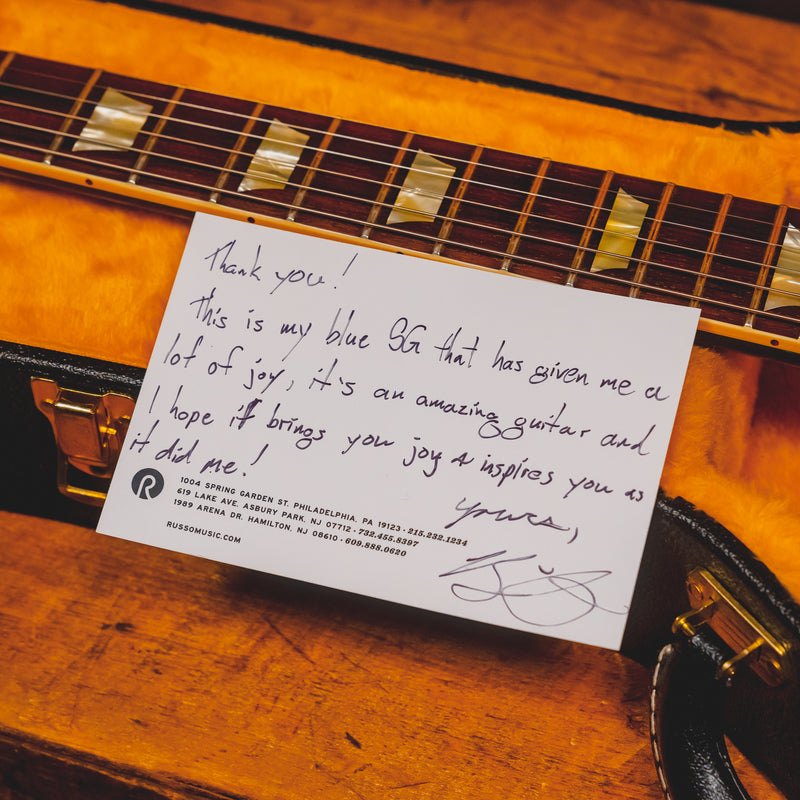 Thank you!
This is my blue SG that has given me a
lot of joy, it's an amazing guitar and
I hope it brings you joy & inspires you as
it did me!
yours,
R
1004 SPRING GARDEN ST. PHILADELPHIA, PA 19123 · 215.232.1234
619 LAKE AVE. ASBURY PARK, NJ 07712 · 732.455.8397
1989 ARENA DR. HAMILTON, NJ 08610 · 609.888.0620
RUSSOMUSIC.COM